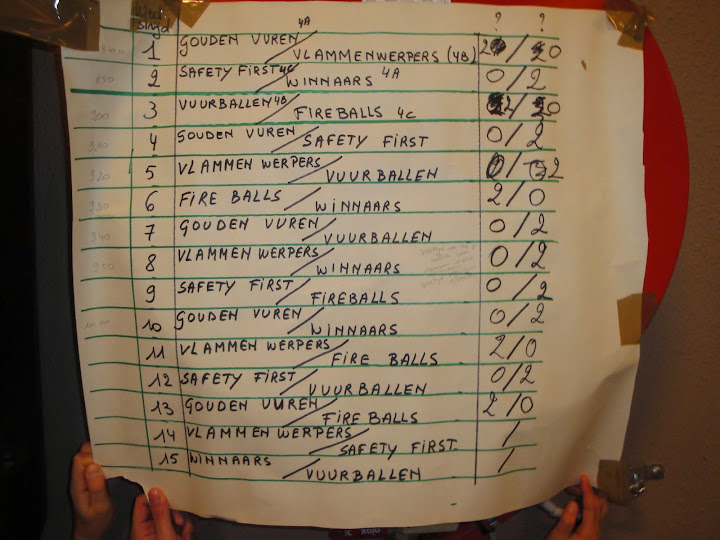 4A ? ?
1 GOUDEN VUREN / VLAMMENWERPERS (4B) 20 / 20
850 2 SAFETY FIRST 4C / WINNAARS 4A 0 / 2
900 3 VUURBALLEN 4B / FIREBALLS 4C / 0
4 GOUDEN VUREN / SAFETY FIRST 0 / 2
920 5 VLAMMEN WERPERS / VUURBALLEN 0 / 2
930 6 FIRE BALLS / WINNAARS 2 / 0
940 7 GOUDEN VUREN / VUURBALLEN 0 / 2
8 VLAMMEN WERPERS / WINNAARS 0 / 2
9 SAFETY FIRST / FIREBALLS 0 / 2
10 GOUDEN VUREN / WINNAARS 0 / 2
11 VLAMMEN WERPERS / FIRE BALLS 2 / 0
12 SAFETY FIRST / VUURBALLEN 0 / 2
13 GOUDEN VUREN / FIRE BALLS 2 / 0
14 VLAMMEN WERPERS / SAFETY FIRST /
15 WINNAARS / VUURBALLEN /